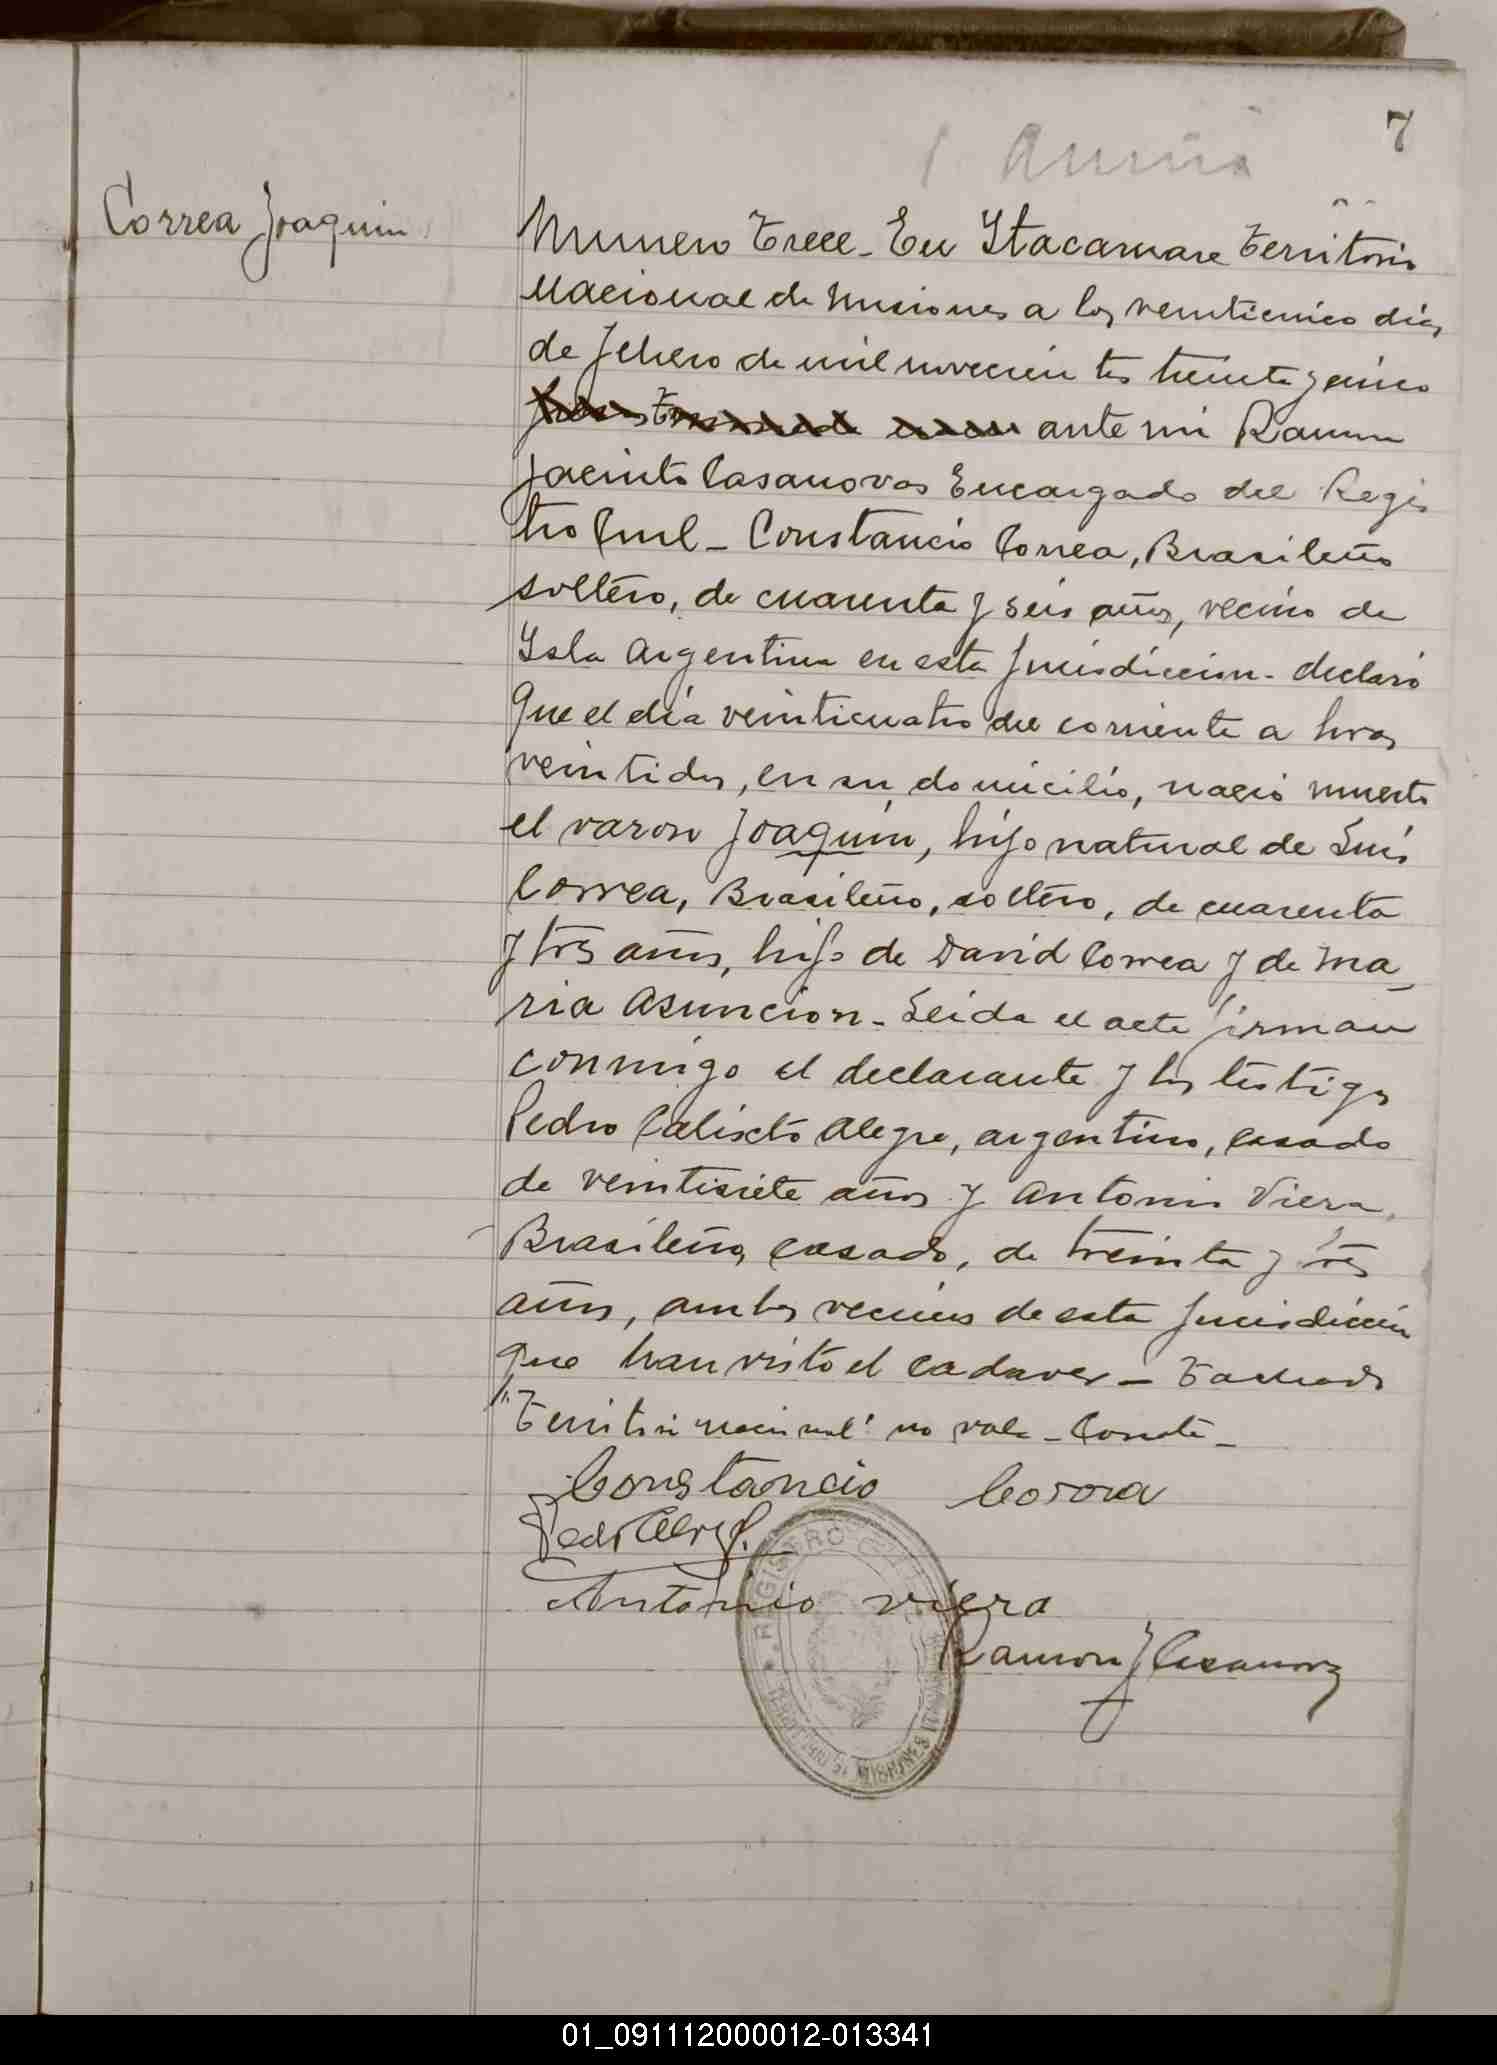 7
Correa Joaquin
Numero Trece - En Itacaruare Territorio
Nacional de Misiones a los veinticinco dias
de febrero de mil novecientos treinta y cinco
ante mi Ramon
Jacinto Casanovas Encargado del Regis
tro Civil - Constancio Correa, Brasileño
soltero, de cuarenta y seis años, vecino de
Isla Argentina en esta Jurisdiccion - declaró
Que el dia veinticuatro del corriente a horas
veintidos, en su domicilio, nació muerto
el varon Joaquin, hijo natural de Luis
Correa, Brasileño, soltero, de cuarenta
y tres años, hijo de David Correa y de Ma
ria Asuncion - Leida el acta firman
conmigo el declarante y los testigos
Pedro Calixto Alegre, argentino, casado
de veintisiete años y Antonio Viera,
Brasileño, casado, de treinta y tres
años, ambos vecinos de esta Jurisdiccion
que han visto el cadaver - Tachado
"Territorio nacional" no vale - Conste -
Constancio Correa
Antonio viera
Ramon J Casanovas
REGISTRO CIVIL
01_091112000012-013341